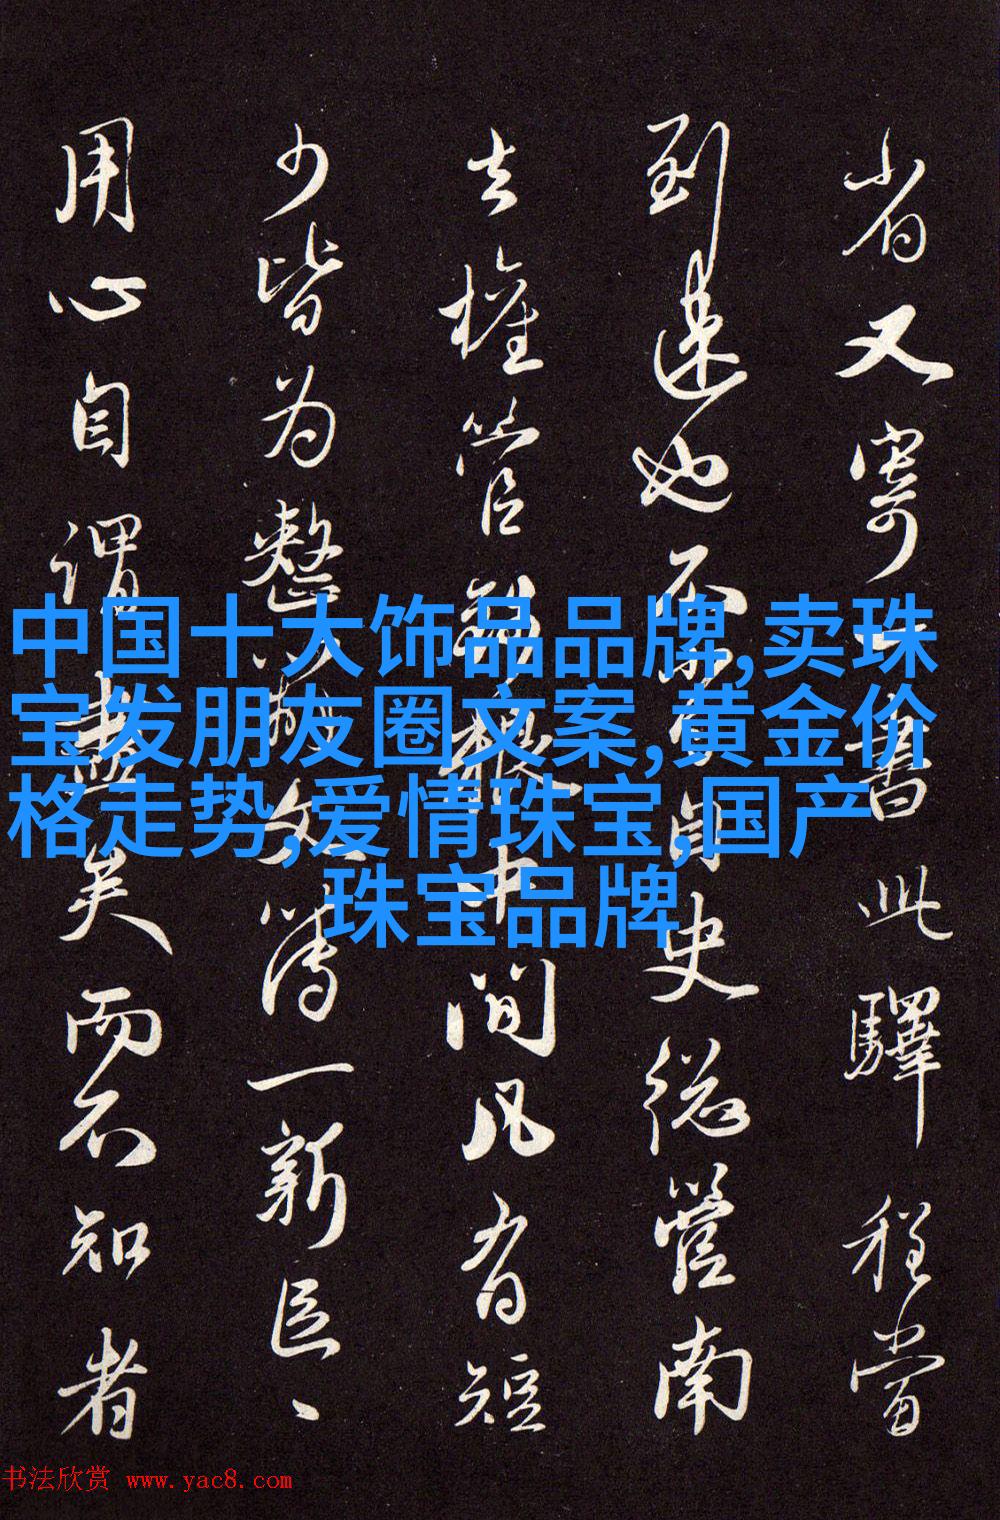 省又寄一書此驛程當
到速也不自史總管南
去權管中間凡有短
少皆为整文簿一新
用心自謂盡矣而不知者
中国十大饰品品牌,卖珠
宝发朋友圈文案,黄金价
格走势,爱情珠宝,国产
珠宝品牌
书法欣赏 www.yac8.com